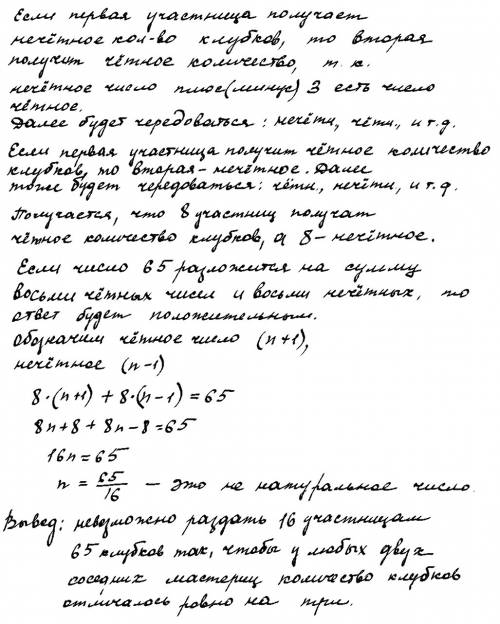 Если первая участница получает
нечётное кол-во клубков, то вторая
получит чётное количество, т.к.
нечётное число плюс(минус) 3 есть число
чётное.
Далее будет чередоваться: нечётн, чётн., и т.д.
Если первая участница получит чётное количество
клубков, то вторая - нечётное. Далее
тоже будет чередоваться: чётн., нечётн, и т.д.
Получается, что 8 участниц получат
чётное количество клубков, а 8 - нечётное.
Если число 65 разложится на сумму
восьми чётных чисел и восьми нечётных, то
ответ будет положительным.
Обозначим чётное число (n+1),
нечётное (n-1)
8·(n+1) + 8·(n-1) = 65
8n+8 + 8n-8 = 65
16n = 65
n = 65/16 - это не натуральное число.
Вывод: невозможно раздать 16 участницам
65 клубков так, чтобы у любых двух
соседних мастериц количество клубков
отличалось ровно на три.